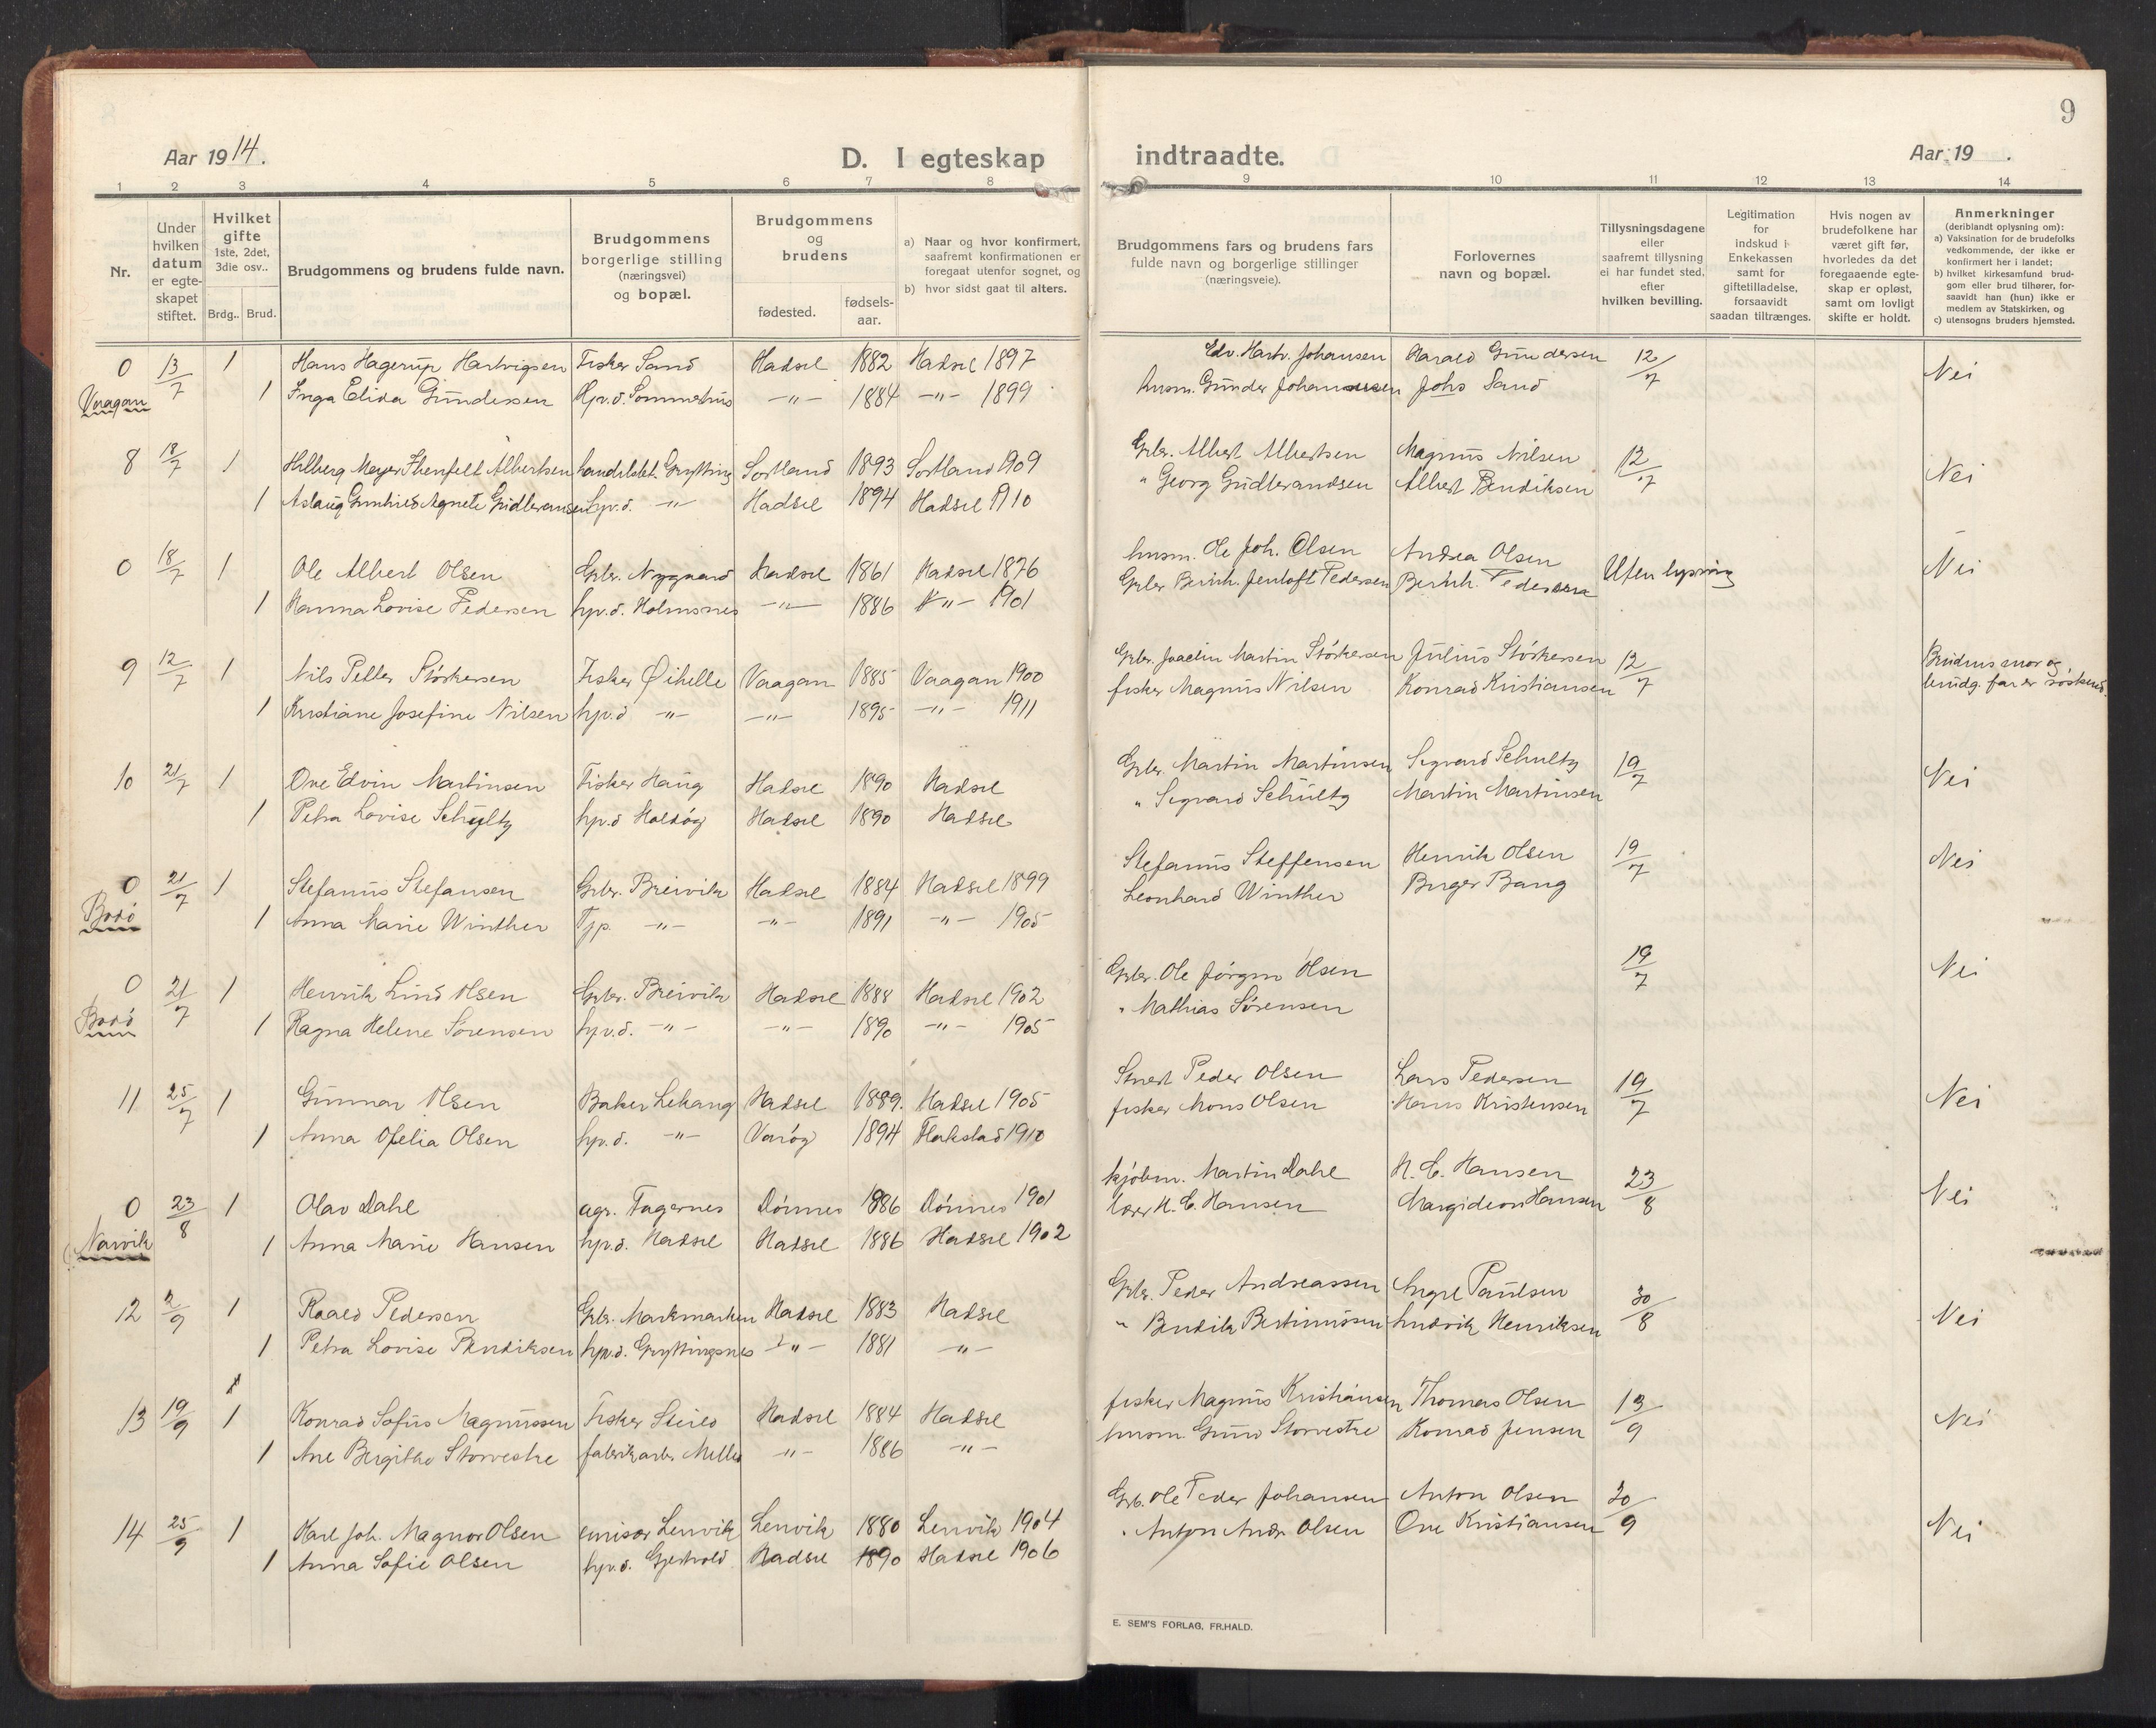 9
Aar 1914.
D. I egteskap
indtraadte.
Aar 19 .
1 2 3 4 5 6 7 8 9 10 11 12 13 14
Nr.
Under hvilken datum er egteskapet stiftet.
Hvilket gifte 1ste, 2det, 3die osv..
Brdg.. Brud.
Brudgommens og brudens fulde navn.
Brudgommens borgerlige stilling (næringsvei) og bopæl.
Brudgommens og brudens
fødested.
fødsels-aar.
a) Naar og hvor konfirmert, saafremt konfirmationen er foregaat utenfor sognet, og
b) hvor sidst gaat til alters.
Brudgommens fars og brudens fars fulde navn og borgerlige stillinger (næringsveie).
Forlovernes navn og bopæl.
Tillysningsdagene eller saafremt tillysning ei har fundet sted, efter hvilken bevilling.
Legitimation for indskud i Enkekassen samt for giftetilladelse, forsaavidt saadan tiltrænges.
Hvis nogen av brudefolkene har været gift før, hvorledes da det foregaaende egteskap er opløst, samt om lovligt skifte er holdt.
Anmerkninger (deriblandt oplysning om):
a) Vaksination for de brudefolks vedkommende, der ikke er konfirmert her i landet;
b) hvilket kirkesamfund brudgom eller brud tilhører, forsaavidt han (hun) ikke er medlem av Statskirken, og
c) utensogns bruders hjemsted.
0 13/7 1 Hans Hagerup Hartvigsen Fisker Sand Hadsel 1882 Hadsel 1897 Edv. Hartv. Johansen Harald Gundersen 12/7 Nei
Vaagan 1 Inga Elida Gundersen Hpv.d. Sommerhus -"- 1884 -"- 1899 husm. Gunder Johannessen Johs Sand
8 18/7 1 Hilberg Meyer Albertsen handelsbet. Grytting Sortland 1893 Sortland 1909 Grbr. Albert Albertsen Magnus Nilsen 12/7 Nei
1 Aslaug Gunhild Agnete Gudbransen hpv.d. -"- Hadsel 1894 Hadsel 1910 " Georg Gudbrandsen Albert Bendiksen
0 18/7 1 Ole Albert Olsen Grbr. Nygaard Hadsel 1861 Hadsel 1876 husm. Ole Joh. Olsen Andrea Olsen Uten lysning Nei
1 Hanna Lovise Pedersen hpv.d. Holmsnes -"- 1886 -"- 1901 Grbr Bernh. Jentoft Pedersen Bernh. Pedersen
9 12/7 1 Nils Petter Størkersen Fisker Øihelle Vaagan 1885 Vaagan 1900 Grbr. Joachim Martin Størkersen Julius Størkersen 12/7 Brudens mor og
1 Kristiane Josefine Nilsen hpv.d -"- -"- 1895 -"- 1911 fisker Magnus Nilsen Konrad Kristiansen brudg. far er søskend.
10 21/7 1 Ove Edvin Martinsen Fisker Haug Hadsel 1890 Hadsel Grbr. Martin Martinsen Sigvard Schultz 19/7 Nei
1 Petra Lovise Schultz hpv.d Holdøy Hadsel 1890 Hadsel " Sigvard Schultz Martin Martinsen
0 21/7 1 Stefanus Stefansen Grbr. Breivik Hadsel 1884 Hadsel 1899 Stefanus Steffensen Henrik Olsen 19/7 Nei
Bodø 1 Anna Marie Winther Tjp. -"- -"- 1891 -"- 1905 Leonhard Winther Birger Bang
0 21/7 1 Henrik Lind Olsen Grbr. Breivik Hadsel 1888 Hadsel 1902 Grbr. Ole Jørgen Olsen 19/7 Nei
Bodø 1 Ragna Helene Sørensen hpv.d. -"- -"- 1890 -"- 1905 " Mathias Sørensen
11 25/7 1 Gunnar Olsen Baker Lekang Hadsel 1889. Hadsel 1905 Peder Olsen Lars Pedersen 19/7 Nei
1 Anna Ofelia Olsen hpv.d. -"- Varøy 1894 Flakstad 1910 fisker Mons Olsen Hans Kristensen
0 23/8 1 Olav Dahl agr. Fagernes Dønnes 1886 Dønnes 1901 kjøbm. Martin Dahl H. C. Hansen 23/8 Nei
Narvik 1 Anna Marie Hansen hpv.d. Hadsel Hadsel 1886 Hadsel 1902 lærer H. C. Hansen Margideon Hansen
12 2/9 1 Roald Pedersen Grbr. Markmarken Hadsel 1883 Hadsel Grbr. Peder Andreassen Angel Paulsen 30/8 Nei
1 Petra Lovise Bendiksen hpv.d. Gryttingsnes -"- 1881 -"- " Bendik Bertinussen Ludvik Henriksen
13 19/9 1 Konrad Sofus Magnussen Fisker Steiro Hadsel 1884 Hadsel fisker Magnus Kristiansen Thomas Olsen 13/9 Nei
1 Ane Bergitte Storvestre fabrikarb. Melbo -"- 1886 -"- husm Storvestre Konrad Jensen
14 25/9 1 Karl Joh. Magnor Olsen emisær Lenvik Lenvik 1880 Lenvik 1904 Grb. Ole Peder Johansen Anton Olsen 20/9 Nei
1 Anna Sofie Olsen hpv.d. Gjerstad Hadsel 1890 Hadsel 1906 " Anton Andr. Olsen Ove Kristiansen
E. SEM'S FORLAG, FR.HALD.